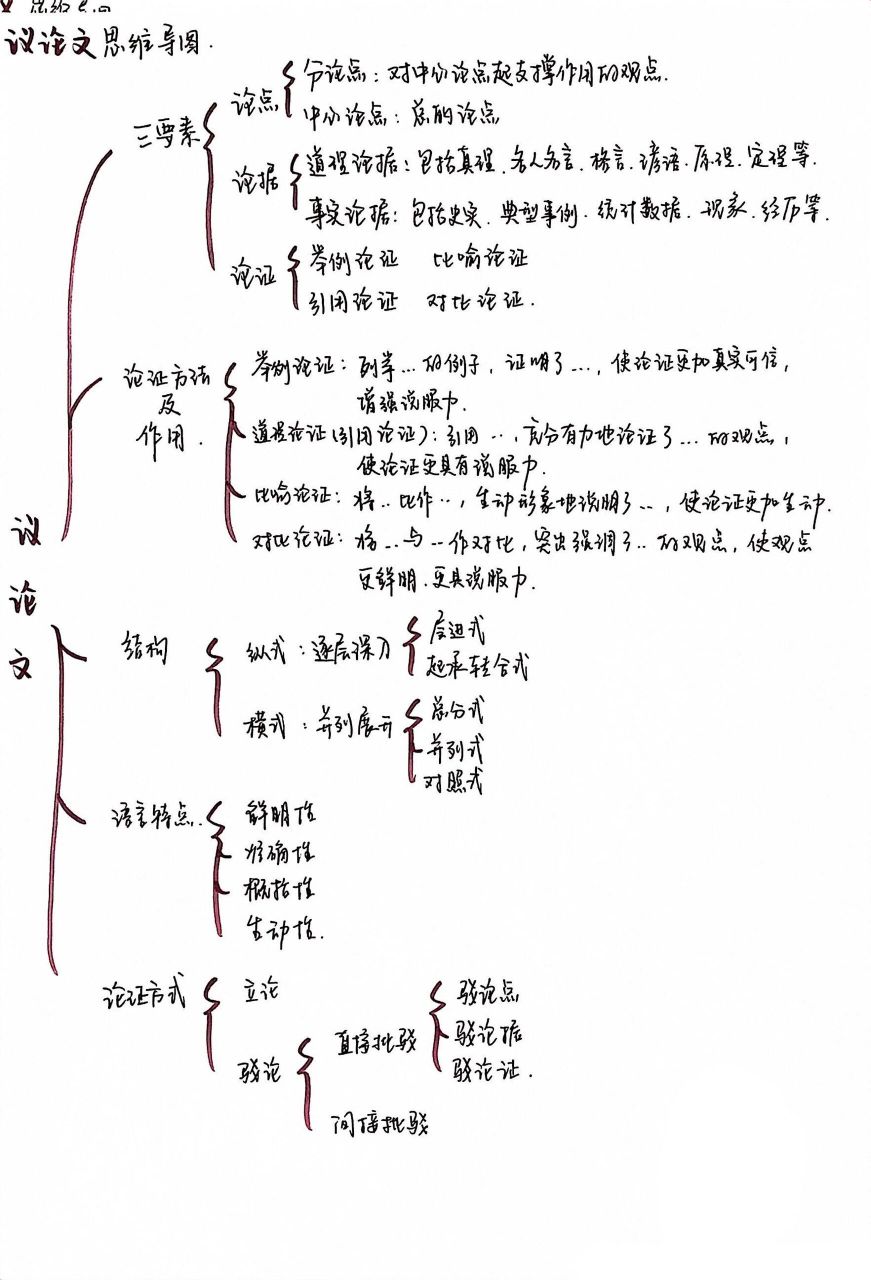 议论文思维导图.
议论文
三要素
论点
分论点：对中心论点起支撑作用的观点.
中心论点：总的论点
论据
道理论据：包括真理、名人名言、格言、谚语、原理、定理等.
事实论据：包括史实、典型事例、统计数据、现象、经历等.
论证
举例论证 比喻论证
引用论证 对比论证.
论证方法
及
作用.
举例论证：列举…的例子，证明了…，使论证更加真实可信，
增强说服力.
道理论证(引用论证)：引用…，充分有力地论证了…的观点，
使论证更具有说服力.
比喻论证：将..比作..，生动形象地说明了..，使论证更加生动.
对比论证：将..与..作对比，突出强调了..的观点，使观点
更鲜明.更具说服力.
结构
纵式：逐层深入
层进式
起承转合式
横式：并列展开
总分式
并列式
对照式
语言特点.
鲜明性
准确性
概括性
生动性.
论证方式
立论
驳论
直接批驳
驳论点
驳论据
驳论证.
间接批驳